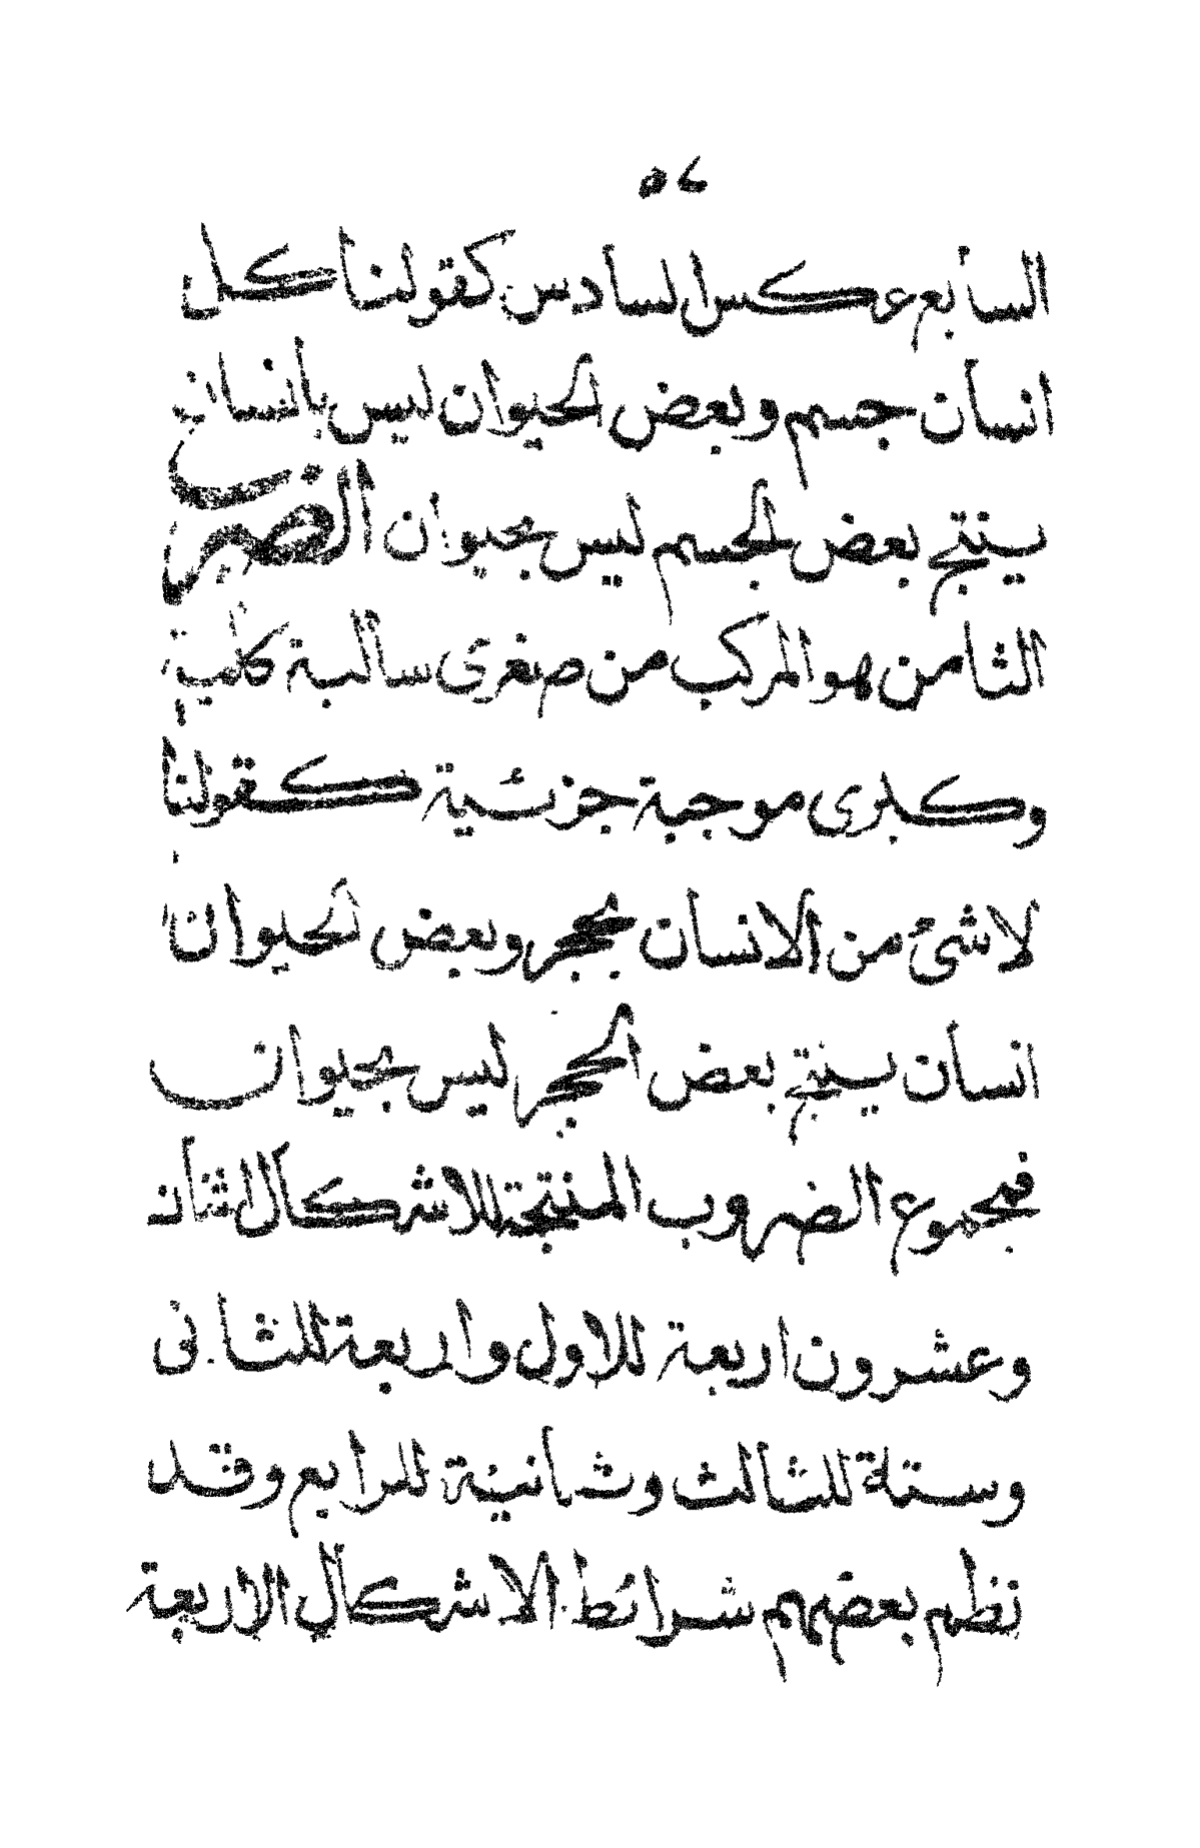 ٥٧
السابع عكس السادس كقولنا كل
انسان جسم وبعض الحيوان ليس بانسان
ينتج بعض الجسم ليس بحيوان الضرب
الثامن هو المركب من صغرى سالبة كلية
وكبرى موجبة جزئية كقولنا
لا شئ من الانسان بحجر وبعض الحيوان
انسان ينتج بعض الحجر ليس بحيوان
فمجموع الضروب المنتجة للاشكال اثنان
وعشرون اربعة للاول واربعة للثانى
وستة للثالث وثمانية للرابع وقد
نظم بعضهم شرائط الاشكال الاربعة